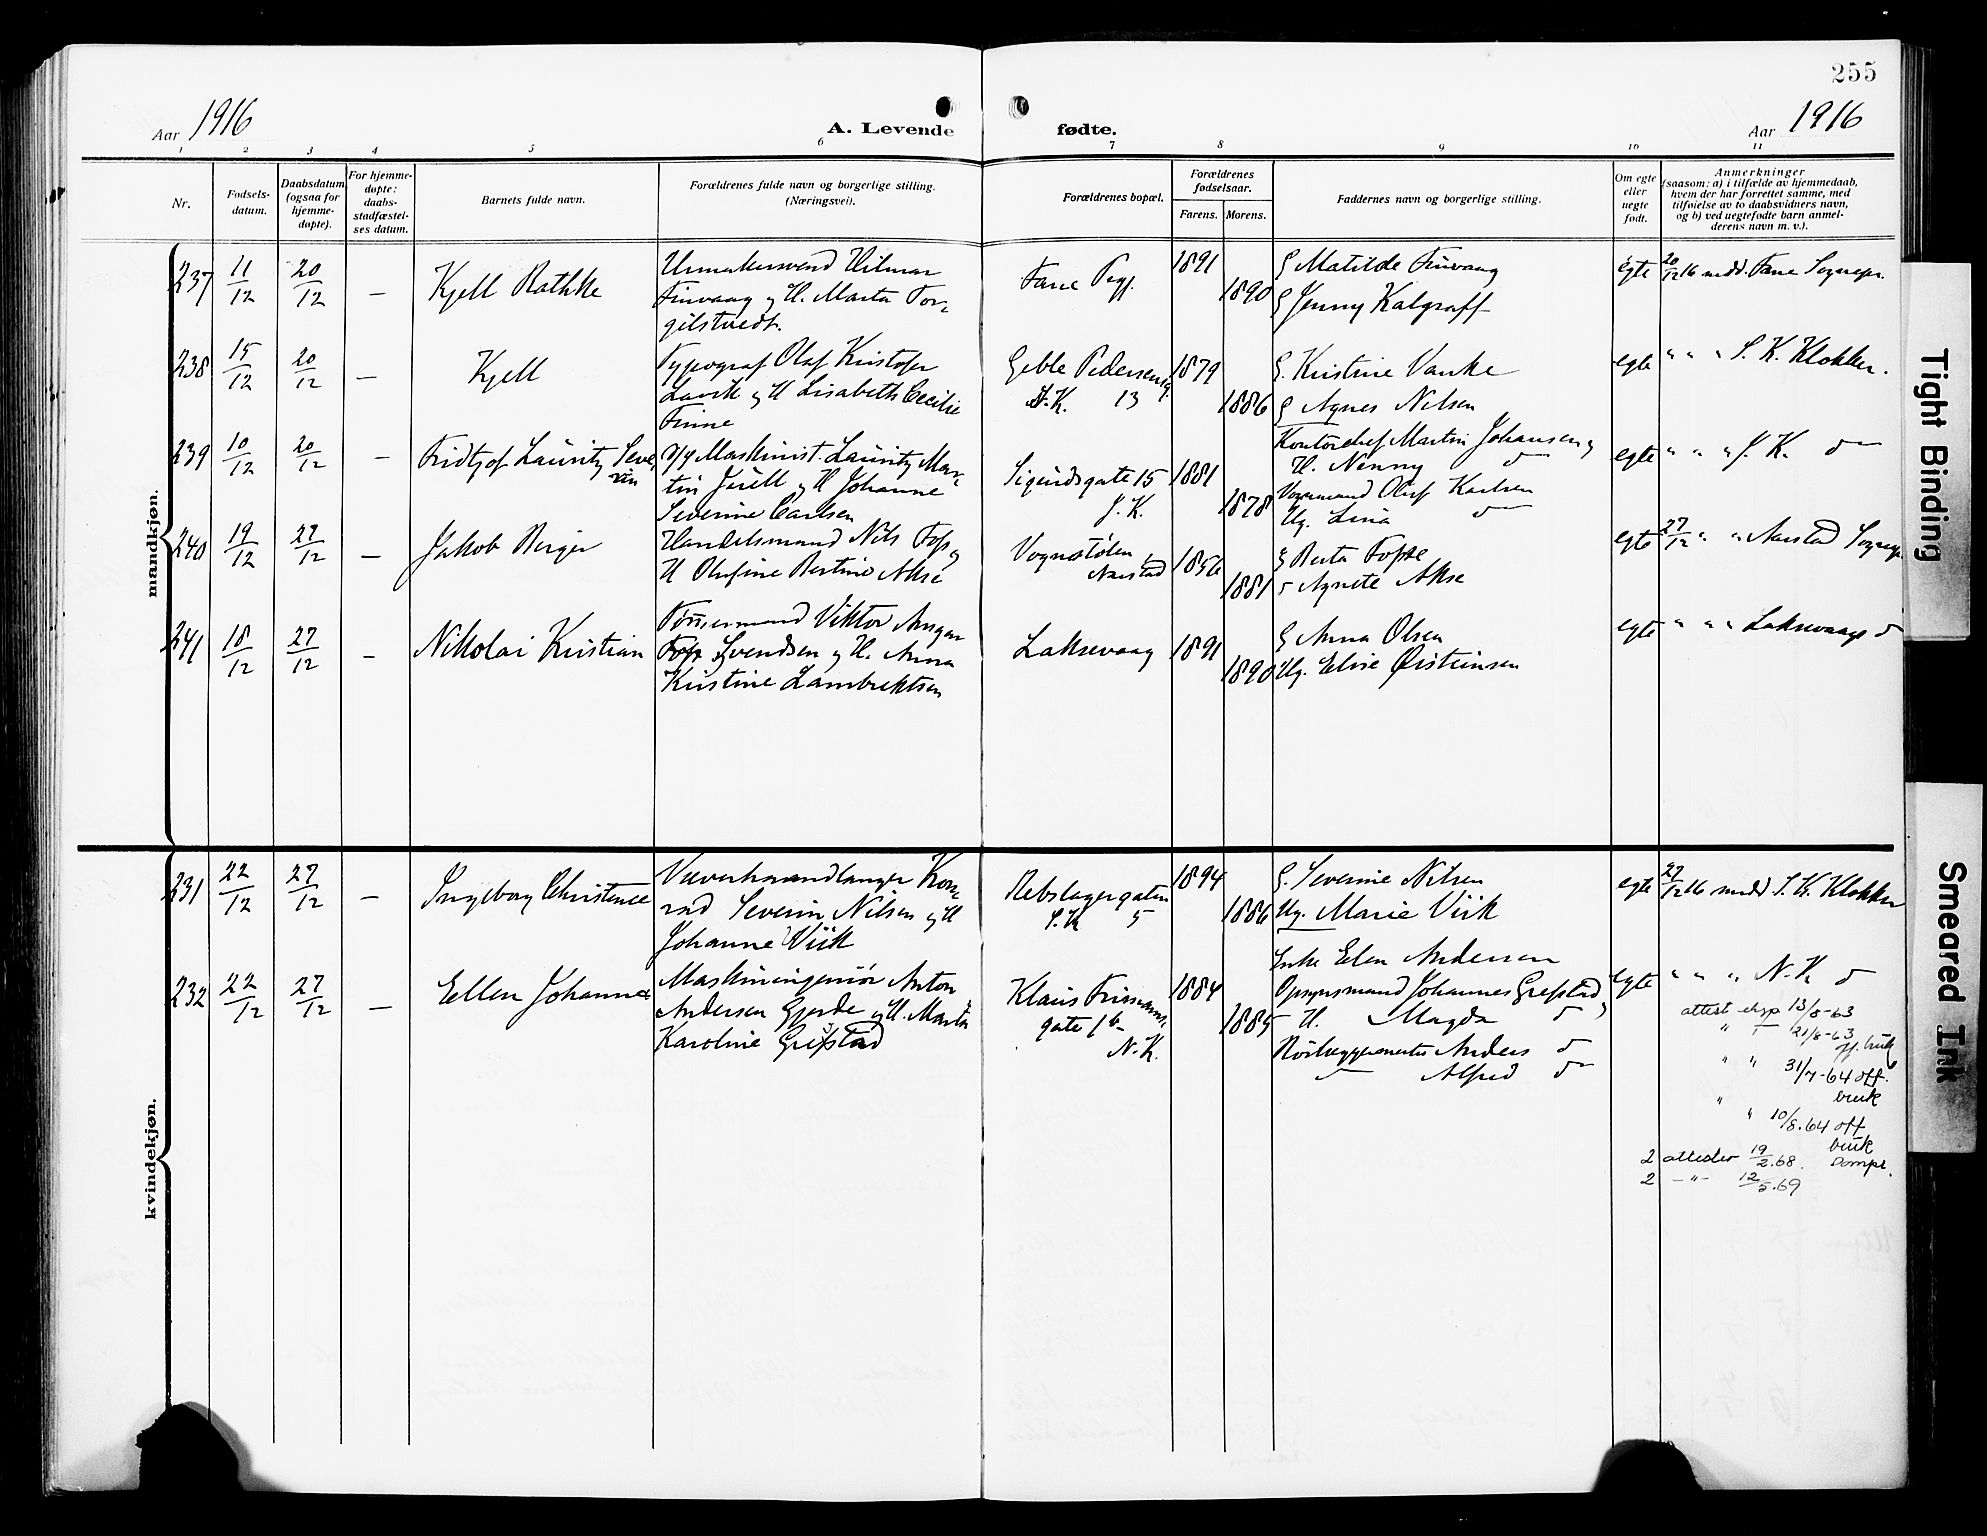 255
Aar 1916
A. Levende fødte.
Aar 1916
1 2 3 4 5 6 7 8 9 10 11
Nr.
Fødsels-
datum.
Daabsdatum
(ogsaa for
hjemme-
døpte).
For hjemme-
døpte:
daabs-
stadfæstel-
ses datum.
Barnets fulde navn.
Forældrenes fulde navn og borgerlige stilling.
(Næringsvei).
Forældrenes bopæl.
Forældrenes
fødselsaar.
Farens. Morens.
Faddernes navn og borgerlige stilling.
Om egte
eller
uegte
født.
Anmerkninger
(saasom: a) i tilfælde av hjemmedaab,
hvem der har forrettet samme, med
tilføielse av to daabsvidners navn,
og b) ved uegtefødte barn anmel-
derens navn m. v.).
mandkjøn.
237 11/12 20/12 — Kjell Rathke
Urmakersvend Hilmar
Finvaag og H. Marta Tor-
gilstvedt.
Fane Pgj.
1891
1890
G Matilde Finvaag
G Jenny Kalgraff
egte
20/12 16 medd. Fane Sognepr.
238 15/12 20/12 — Kjell
Typograf Olaf Kristofer
Lavik og H Lisabeth Cecilie
Finne
Geble Pedersensg.
D.K. 13
1879
1886
G. Kristine Vanke
G Agnes Nilsen
egte
" " " S. K. Klokker.
239 10/12 20/12 — Fridtjof Lauritz Seve-
rin
Maskinist Lauritz Mar-
tin Jurell og H Johanne
Severine Carlsen
Sigurdsgate 15
J. K.
1881
1878
Kontorchef Martin Johansen og
H. Nenny d
Vognmand Oluf Karlsen
Ug. Lina d
egte
" " " J. K. d
240 19/12 27/12 — Jakob Birger
Handelsmand Nils Foss og
H Olufine Bertine Akse
Vognstølen
Aarstad
1856
1881
G Berta Fosse
d Agnete Akse
egte
27/12 " " Aarstad Sognepr.
241 18/12 27/12 — Nikolai Kristian
Viktor Ansgar
Svendsen og H. Anna
Kristine Lambrektsen
Laksevaag
1891
1890
G Anna Olsen
Ug. Elvie Øisteinsen
egte
" " " Laksevaags d
kvindekjøn.
231 22/12 27/12 — Ingeborg Christence
Murerhaandlanger Kon-
rad Severin Nilsen og H
Johanne Viik
Rebslagergaten
S.K 5
1894
1886
G. Severine Nilsen
Ug. Marie Viik
egte
27/12 16 medd S. K. Klokker
232 22/12 27/12 — Ellen Johanna
Maskiningeniør Anton
Andersen Gjerde og H. Marta
Karoline Grefstad
Klaus Frimanns-
gate 1b
N.K.
1884
1885
Enke Elen Andersen
Opsynsmand Johannes Grefstad,
H. Magda d
Rörlæggermester Anders d
— Alfred d
egte
" " " N. K d
attest eksp 13/8-63
" — 21/8-63
off. bruk
" " 31/7-64 off.
bruk
" " 10/8.64 off
bruk
2 attester 19/2.68. Dompr.
2 -"- 12/5.69
Tight Binding
Smeared Ink